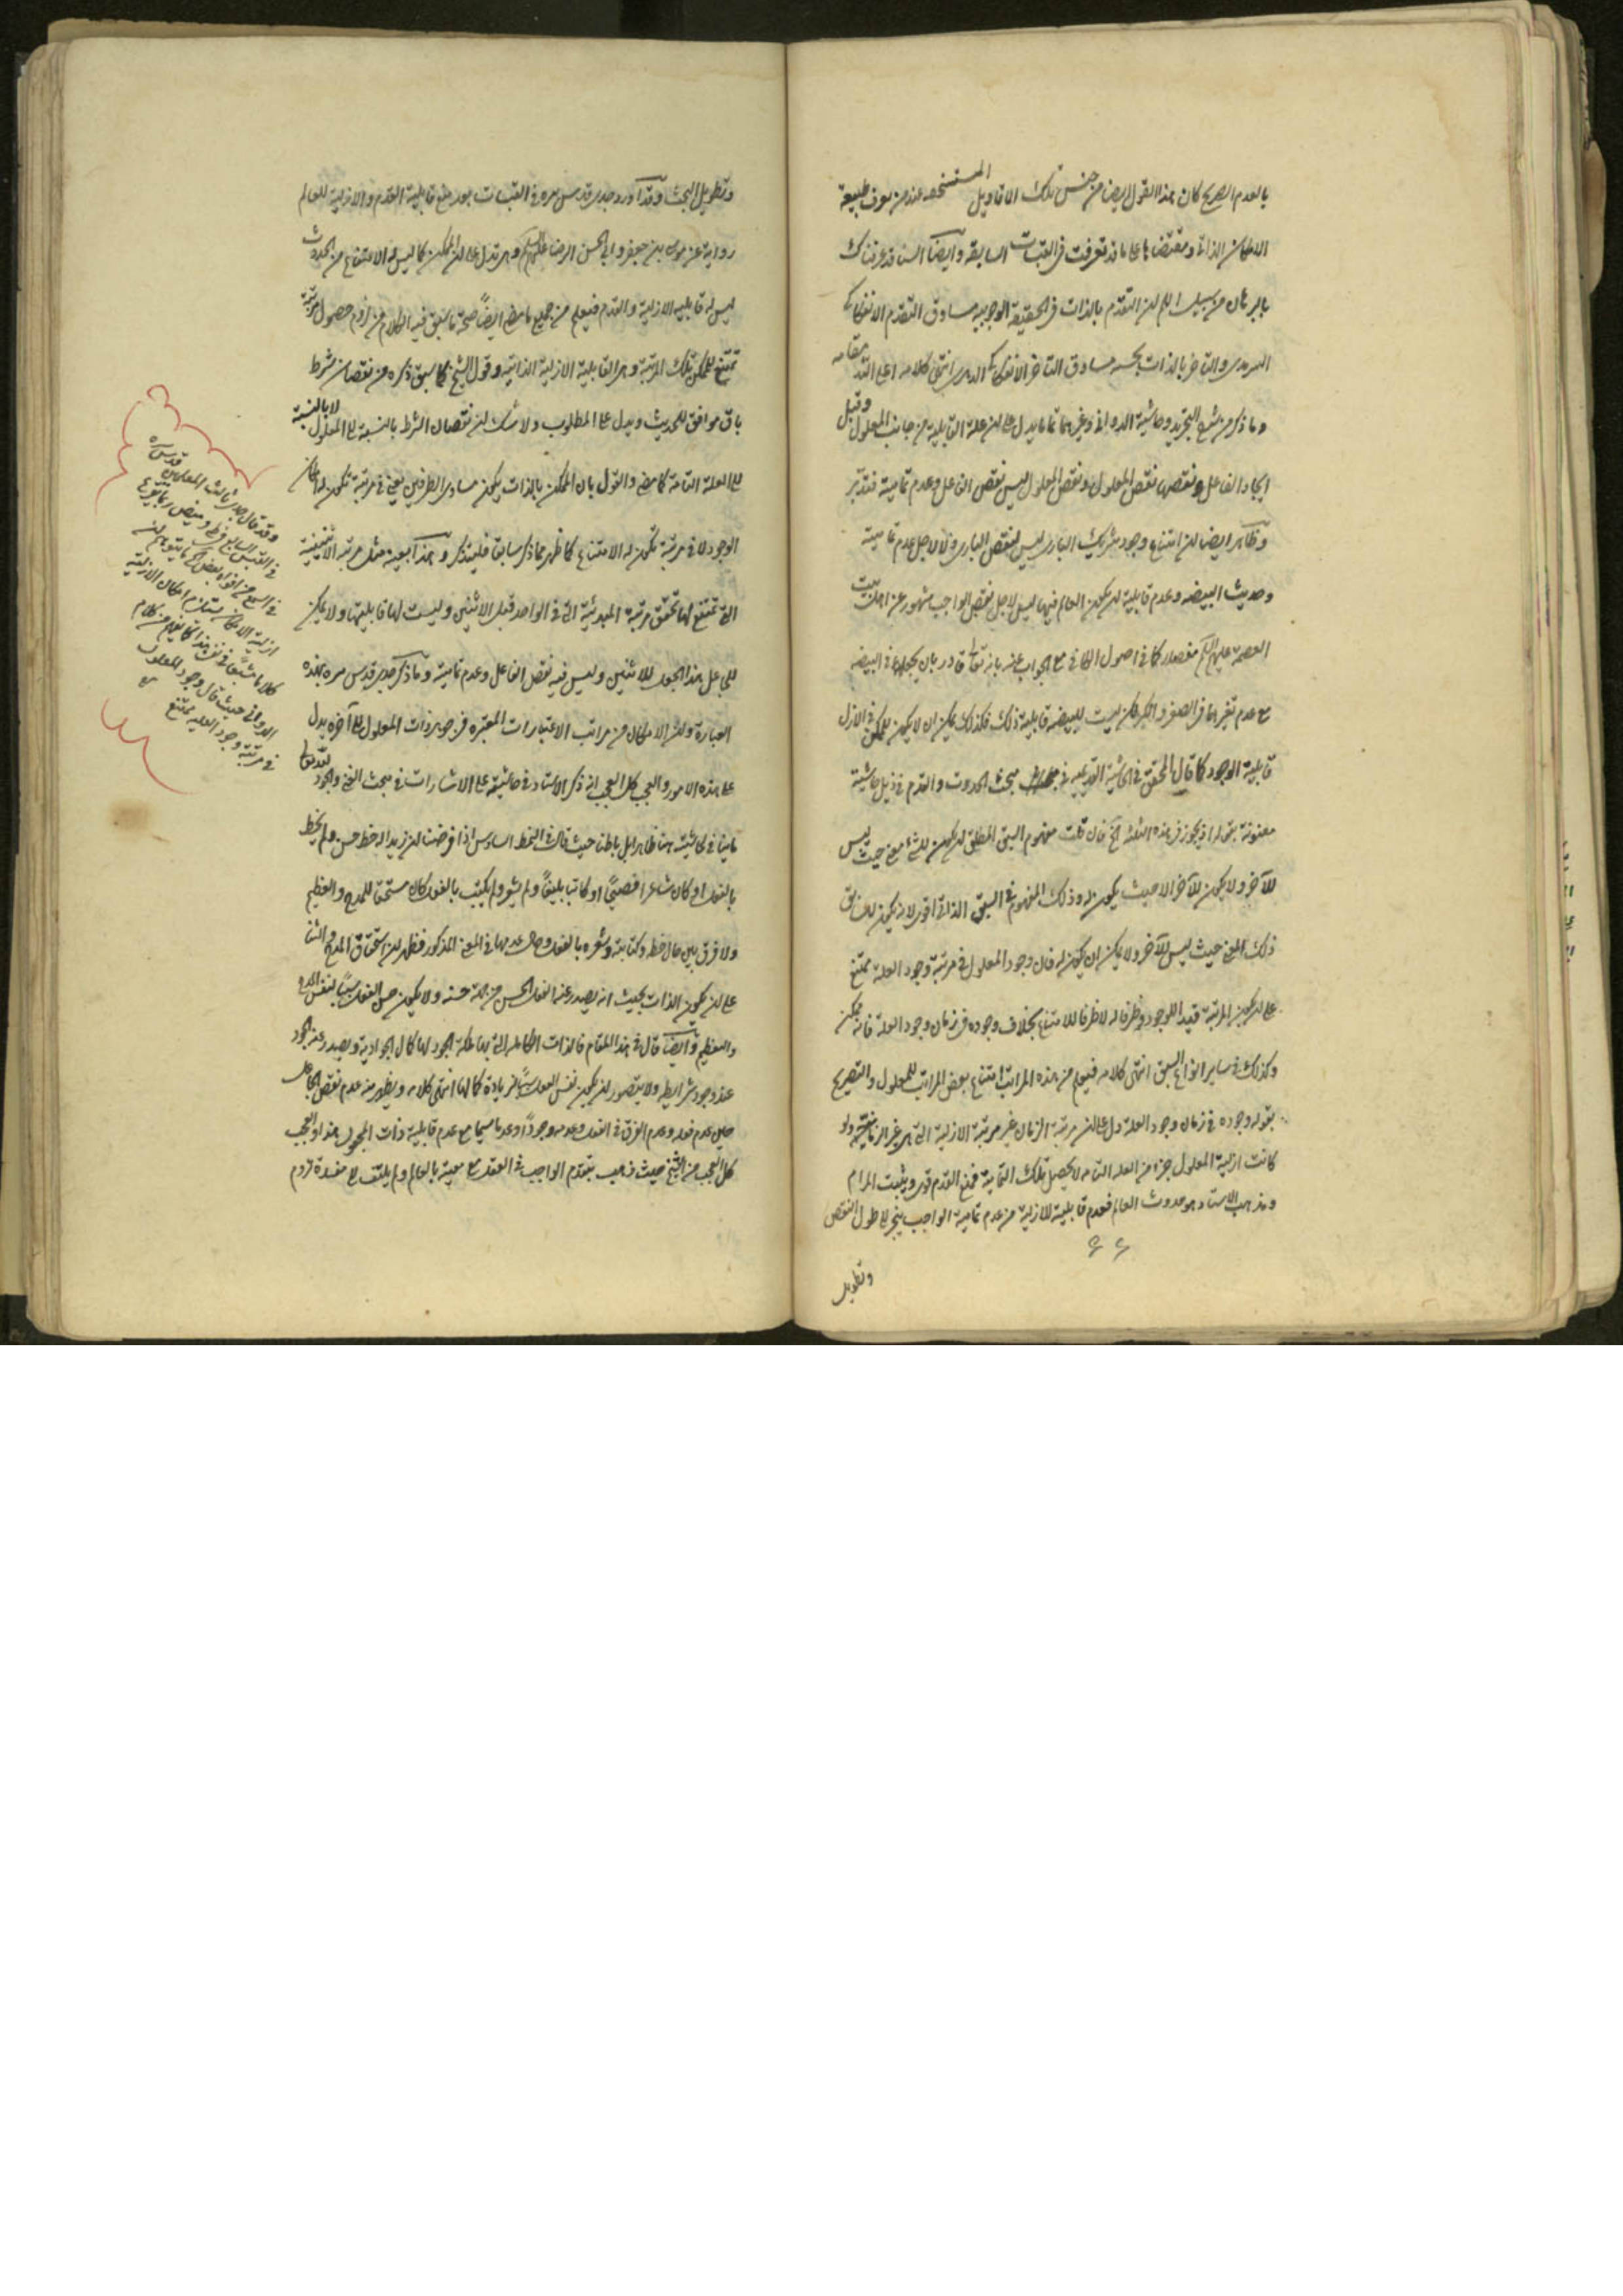 بالعدم الصريح كان هذا القول ايضا من جنس تلك الاقاويل المستسخفه عند من يعرف طبيعة
الامكان الذاتي ومقتضاها على ما قد تعرفت في القبسات السابقه وايضا السنا قد عرفناك
بالبرهان من سبيل اللم ان التقدم بالذات في الحقيقة الوجوبية مساوق التقدم الانفكاكي
السرمدي والتاخر بالذات بحسبه مساوق التاخر الانفكاكي الدهري انتهى كلامه اعلى الله مقامه
وما ذكر من شرح التجريد وحاشية الدواني وغيرهما مما يدل على ان علة القابلية من جانب المعلول وقبل
ايجاد الفاعل ونقصها نقص المعلول ونقص المعلول ليس نقص الفاعل وعدم تماميته فتدبر
وظاهر ايضا ان امتناع وجود شريك الباري ليس لنقص الباري ولا لاجل عدم تماميته
وحديث البيضه وعدم قابلية ان يكون العالم فيها ليس لاجل نقص الواجب مشهور عن اهل بيت
العصمة عليهم السلم مفصلا كما في اصول الكافي مع الجواب عنه بانه تعالى قادر بان يجعلها في البيضه
مع عدم تغيرهما في الصغر والكبر لكن ليست للبيضه قابلية ذلك فكذلك يمكن ان لا يكون للممكن في الازل
قابلية الوجود كما قال المحقق في الحاشية القديمه في مبحث الحدوث والقدم في ذيل حاشية
معنونة بقوله اذ يجوز في هذه الثلثة الخ فان قلت مفهوم السبق المطلق ان يكون للشئ معنى حيث ليس
للآخر ولا يكون للآخر الا حيث يكون له وذلك المفهوم في السبق الذاتي اقوى لانه يكون للسابق
ذلك المعنى حيث ليس للآخر ولا يمكن ان يكون له فان وجود المعلول في مرتبة وجود العلة ممتنع
على ان يكون المرتبة قيدا للوجود وظرفا له لا ظرفا للامتناع بخلاف وجوده في زمان وجود العلة فانه ممكن
وكذلك في ساير انواع السبق انتهى كلامه فيعلم من هذه المراتب امتناع بعض المراتب للمعلول والتصريح
بقوله وجوده في زمان وجود العلة دل على ان مرتبة الزمان غير مرتبة الازلية التي هي غير الزمانية ولو
كانت ازلية المعلول جزا من العله التامه لا يحصل تلك التمامية فمنع القدم قوي ويثبت المرام
ومذهب الاستاد هو حدوث العالم فعدم قابلية الازلية من عدم تمامية الواجب ينجر الى طول النقص
وتطويل
وتطويل البحث وقد اورد جدي قدس سره في القبسات بعد منع قابلية القدم والازلية للعالم
رواية عن موسى بن جعفر وابي الحسن الرضا عليهم السلم وهي تدل على ان الممكن كما ليس له الامتناع من الحدوث
ليس له قابلية الازلية والقدم فيعلم من جميع ما مضى ايضا صحة ما سبق فيه الكلام من لزوم حصول مرتبة
تمتنع للممكن تلك المرتبة وهي القابلية الازلية الذاتية وقول الشيخ كما سبق ذكره من نقصان شرط
باق موافق للحديث ويدل على المطلوب ولا شك ان نقصان الشرط بالنسبة الى المعلول لا بالنسبة
الى العلة التامة كما مضى والقول بان الممكن بالذات يكون مساوي الطرفين يعني في مرتبة تكون له امكان
الوجود لا في مرتبة تكون له الامتناع كما ظهر مما ذكر سابقا فليتذكر وهذا بعينه مثل مرتبة الاثنينية
التي تمتنع لها تحقق مرتبة المبدئية التي في الواحد قبل الاثنين وليست لها قابليتها ولا يمكن
للجاعل هذا الجعل للاثنين وليس فيه نقص الفاعل وعدم تماميته وما ذكر جدي قدس سره بهذه
العبارة وان الامكان من مراتب الاعتبارات المعتبره في جوهر ذات المعلول الى آخره يدل
على هذه الامور والعجب كل العجب انه ذكر الاستاد في حاشيته على الاشارات في مبحث الغنى والجود لله تعالى
ما ينافي حاشيته هنا ظاهرا بل باطنا حيث قال في النمط السادس اذا فرضنا ان زيدا له خط حسن ولم يخط
بالفعل او كان شاعرا فصيحًا او كاتبا بليغًا ولم يشعر ولم يكتب بالفعل كان مستحق للمدح والتعظيم
ولا فرق بين حال خطه وكتابته وشعره بالفعل وحال عدمها في المعنى المذكور فظهر ان استحقاق المدح والثنا
على ان يكون الذات بحيث انه يصدر عنه الفعل الحسن من جهة حسنه ولا يكون حسن الفعل سببًا لنفس المدح
والتعظيم وايضا قال في هذا المقام فالذات الكامله التي لها ملكة الجود لها كمال الجوادية ويصدر عنه الجود
عند وجود شرايطه ولا يتصور ان يكون نفس الفعل سببًا لزيادة كمالها انتهى كلامه ويظهر منه عدم نقص الجاعل
حين عدم فعله وعدم الفرق في الفعل وعدمه وجودًا وعدما سيما مع عدم قابلية ذات المجعول هذا والعجب
كل العجب من الشيخ حيث ذهب بتقدم الواجب في العقد مع معيته بالعالم ولم يلتفت الى مفسدة لزوم
وقد قال جدي ثالث المعلمين قدس سره
في القبس السابع
في السمع من افواه بعض ما يتوهم ان
ازلية الامكان يستلزم امكان الازلية
كلاما مشبعًا كما يفهم من كلام
الدواني حيث قال وجود المعلول
في مرتبة وجود العلة ممتنع